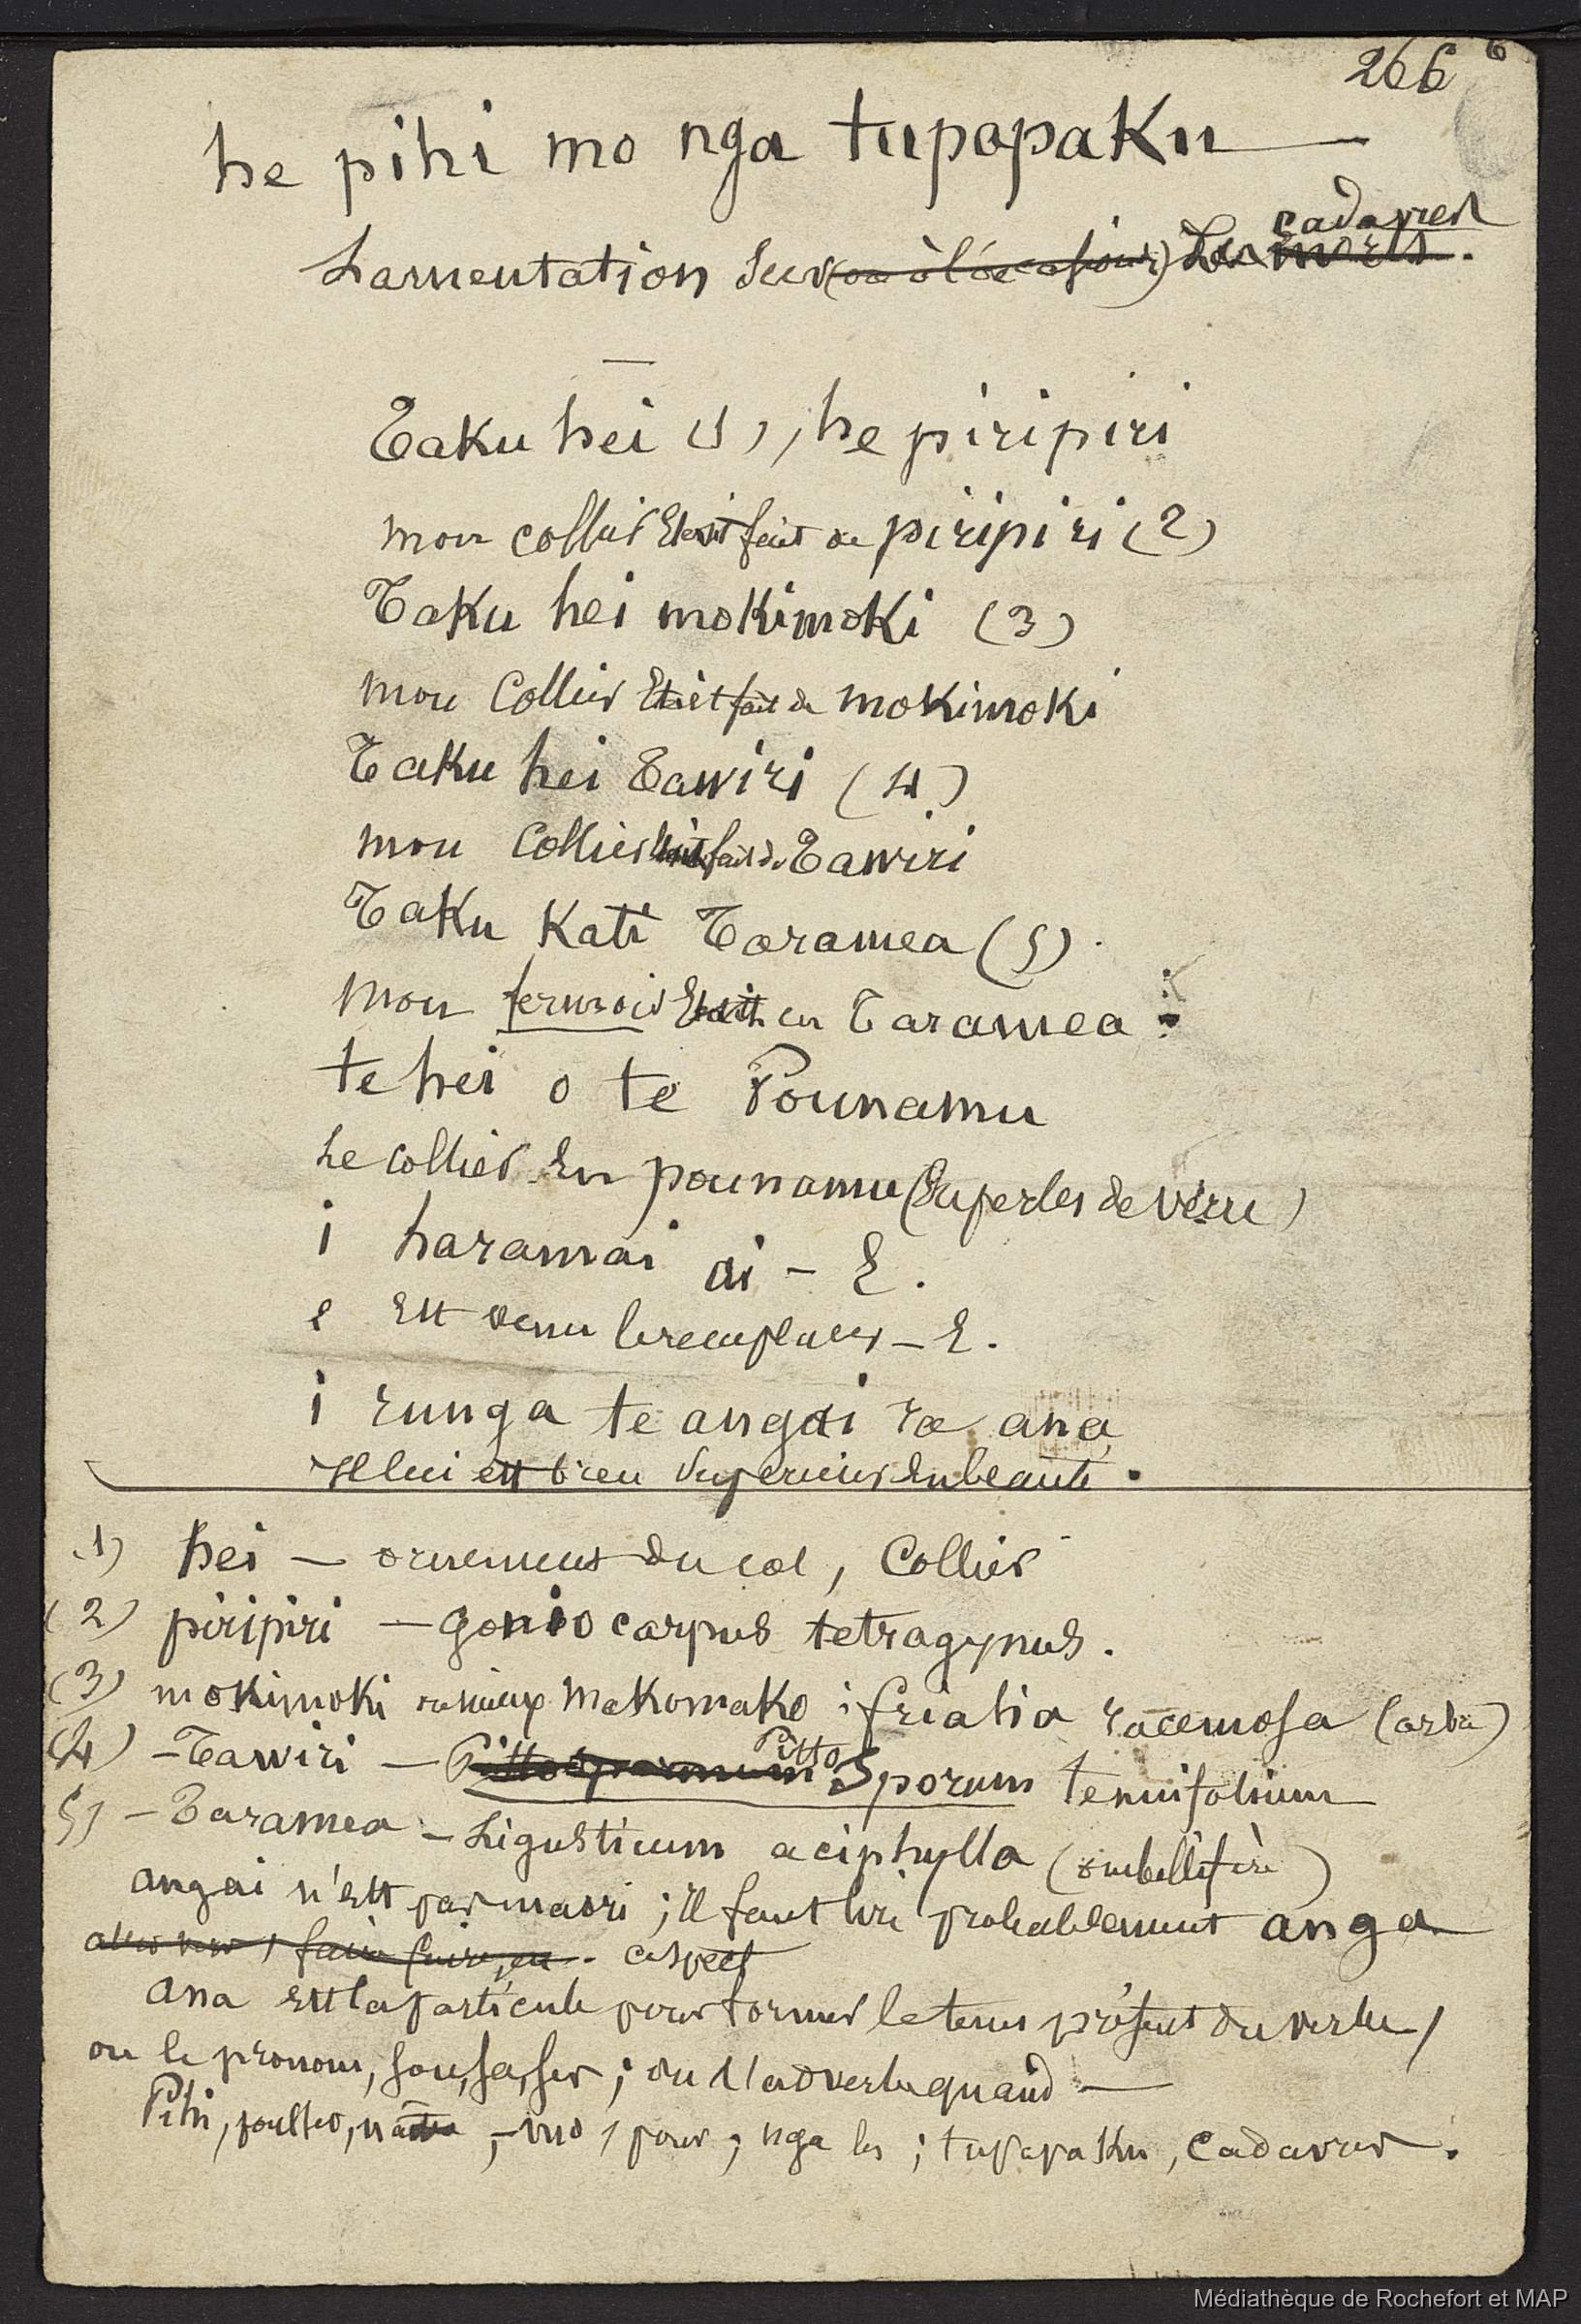 266 6
he pihi mo nga tupapaku —
cadavres
Lamentation sur (ou à l'occasion) les morts.
—
Taku hei (1), he piripiri
mon collier était fait de piripiri (2)
Taku hei mokimoki (3)
mon collier était fait de mokimoki
Taku hei Tawiri (4)
mon collier était fait de Tawiri
Taku Kati Taramea (5).
mon fermoir était en Taramea :
te hei o te Pounamu
Le collier en pounamu (ou perles de verre)
i haramai ai – E.
e est venu le remplacer – E.
i runga te angai ra ana
Il lui est bien supérieur en beauté.
(1) hei — ornement du col, collier
(2) piripiri — goniocarpus tetragynus.
(3) mokimoki ou mieux makomako ; friesia racemosa (arbre)
(4) – Tawiri — Pittospormum Pittosporum tenuifolium
5) – Taramea – Ligusticum aciphylla (ombellifère)
angai n'est pas maori ; il faut lire probablement anga
faire aspect
ana est la particule pour former le tems présent du verbe,
ou le pronom, son, sa, ses ; ou l'adverbe quand —
Pihi, – mo, pour ; nga les ; tupapaku, cadavres.
Médiathèque de Rochefort et MAP